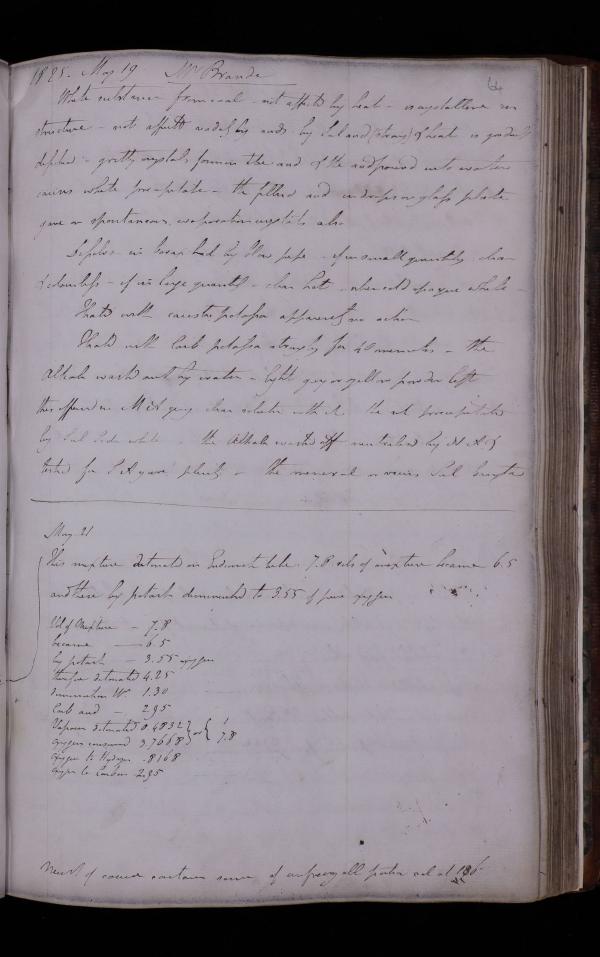 1825. May 19 Mr Brande
64
White substance from coal - not affected by heat - is crystalline in
structure - not affected by acids by Sul acid (strong) & heat is gradually
dissolved - gritty crystals form in the acid & the acid poured into water
causes white precipitate - the filtered acid in drops on glass plate
gave on spontaneous evaporation crystals also
Dissolves in borax bead by blow pipe - if in small quantity clear
& colourless - if in large quantity - clear hot - when cold opaque white -
Heated with caustic potassa apparently no action
Heated with Carb potassa strongly for 40 minutes - the
Alkali washed out by water - light grey or yellow powder left
this diffused in M A gave clear solution with it precipitated
by Sul Soda white - the Alkali washed off neutralized by N A &
tested for S A gave plenty - the mineral is Sul baryta
May 21
This mixture detonated in Eudiometer tube 7.8 vols of mixture became 6.5
and these by potash diminished to 3.55 of pure oxygen
Vol of Mixture - 7.8
became - 6.5
by potash - 3.55 oxygen
therefore detonated 4.25
diminution 1.30
Carb acid - 2.95
Vapour detonated 0.4832 or 1
oxygen consumed 3.7668 7.8
oxygen to Hydrogen .8168
oxygen to Carbon 2.95
Must of course contain some of at 186